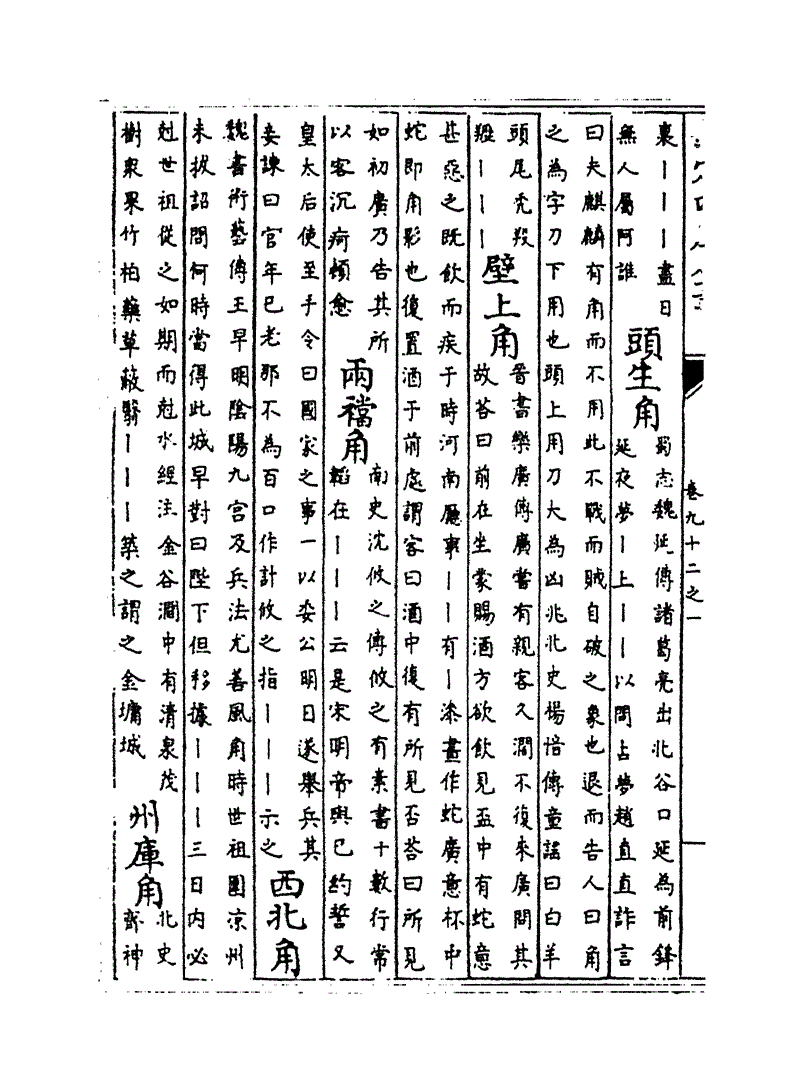 卷九十二之一
裏丨丨丨盡日
無人屬阿誰
頭生角
蜀志魏延傳諸葛亮出北谷口延為前鋒
延夜夢丨上丨丨以問占夢趙直直詐言
曰夫麒麟有角而不用此不戰而賊自破之象也退而告人曰角
之為字刀下用也頭上用刀大為凶兆北史楊愔傳童謡曰白羊
頭尾禿羖
䍽丨丨丨
壁上角
晉書樂廣傳廣嘗有親客久濶不復來廣問其
故荅曰前在坐蒙賜酒方欲飲見盃中有蛇意
甚惡之既飲而疾于時河南廳事丨丨有丨漆畫作蛇廣意杯中
蛇即角影也復置酒于前處謂客曰酒中復有所見否荅曰所見
如初廣乃告其所
以客沉疴頓愈
兩襠角
南史沈攸之傳攸之有素書十數行常
韜在丨丨丨云是宋明帝與已約誓又
皇太后使至手令曰國家之事一以委公明日遂舉兵其
妾諫曰官年已老那不為百口作計攸之指丨丨丨示之
西北角
魏書術藝傳王早明陰陽九宫及兵法尤善風角時世祖圍凉州
未拔詔問何時當得此城早對曰陛下但移據丨丨丨三日内必
尅世祖從之如期而尅水經注金谷澗中有清泉茂
樹衆果竹柏藥草蔽翳丨丨丨築之謂之金墉城
州庫角
北史
齊神